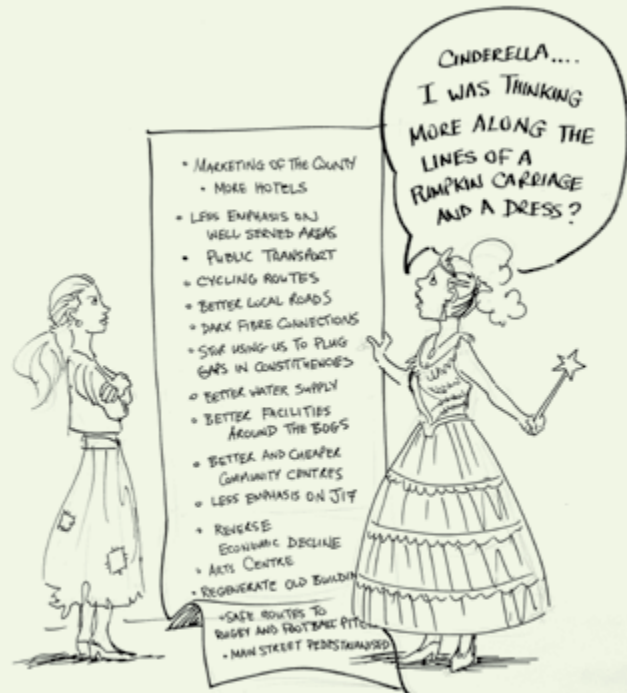 CINDERELLA....
I WAS THINKING
MORE ALONG THE
LINES OF A
PUMPKIN CARRIAGE
AND A DRESS?
• MARKETING OF THE COUNTY
• MORE HOTELS
• LESS EMPHASIS ON
WELL SERVED AREAS
• PUBLIC TRANSPORT
• CYCLING ROUTES
• BETTER LOCAL ROADS
• DARK FIBRE CONNECTIONS
• STOP USING US TO PLUG
GAPS IN CONSTITUENCIES
• BETTER WATER SUPPLY
• BETTER FACILITIES
AROUND THE BOGS
• BETTER AND CHEAPER
COMMUNITY CENTRES
• LESS EMPHASIS ON J17
• REVERSE
ECONOMIC DECLINE
• ARTS CENTRE
• REGENERATE OLD BUILDIN
• SAFE ROUTES TO
RUGBY AND FOOTBALL PITC
• MAIN STREET PEDESTRIANISED